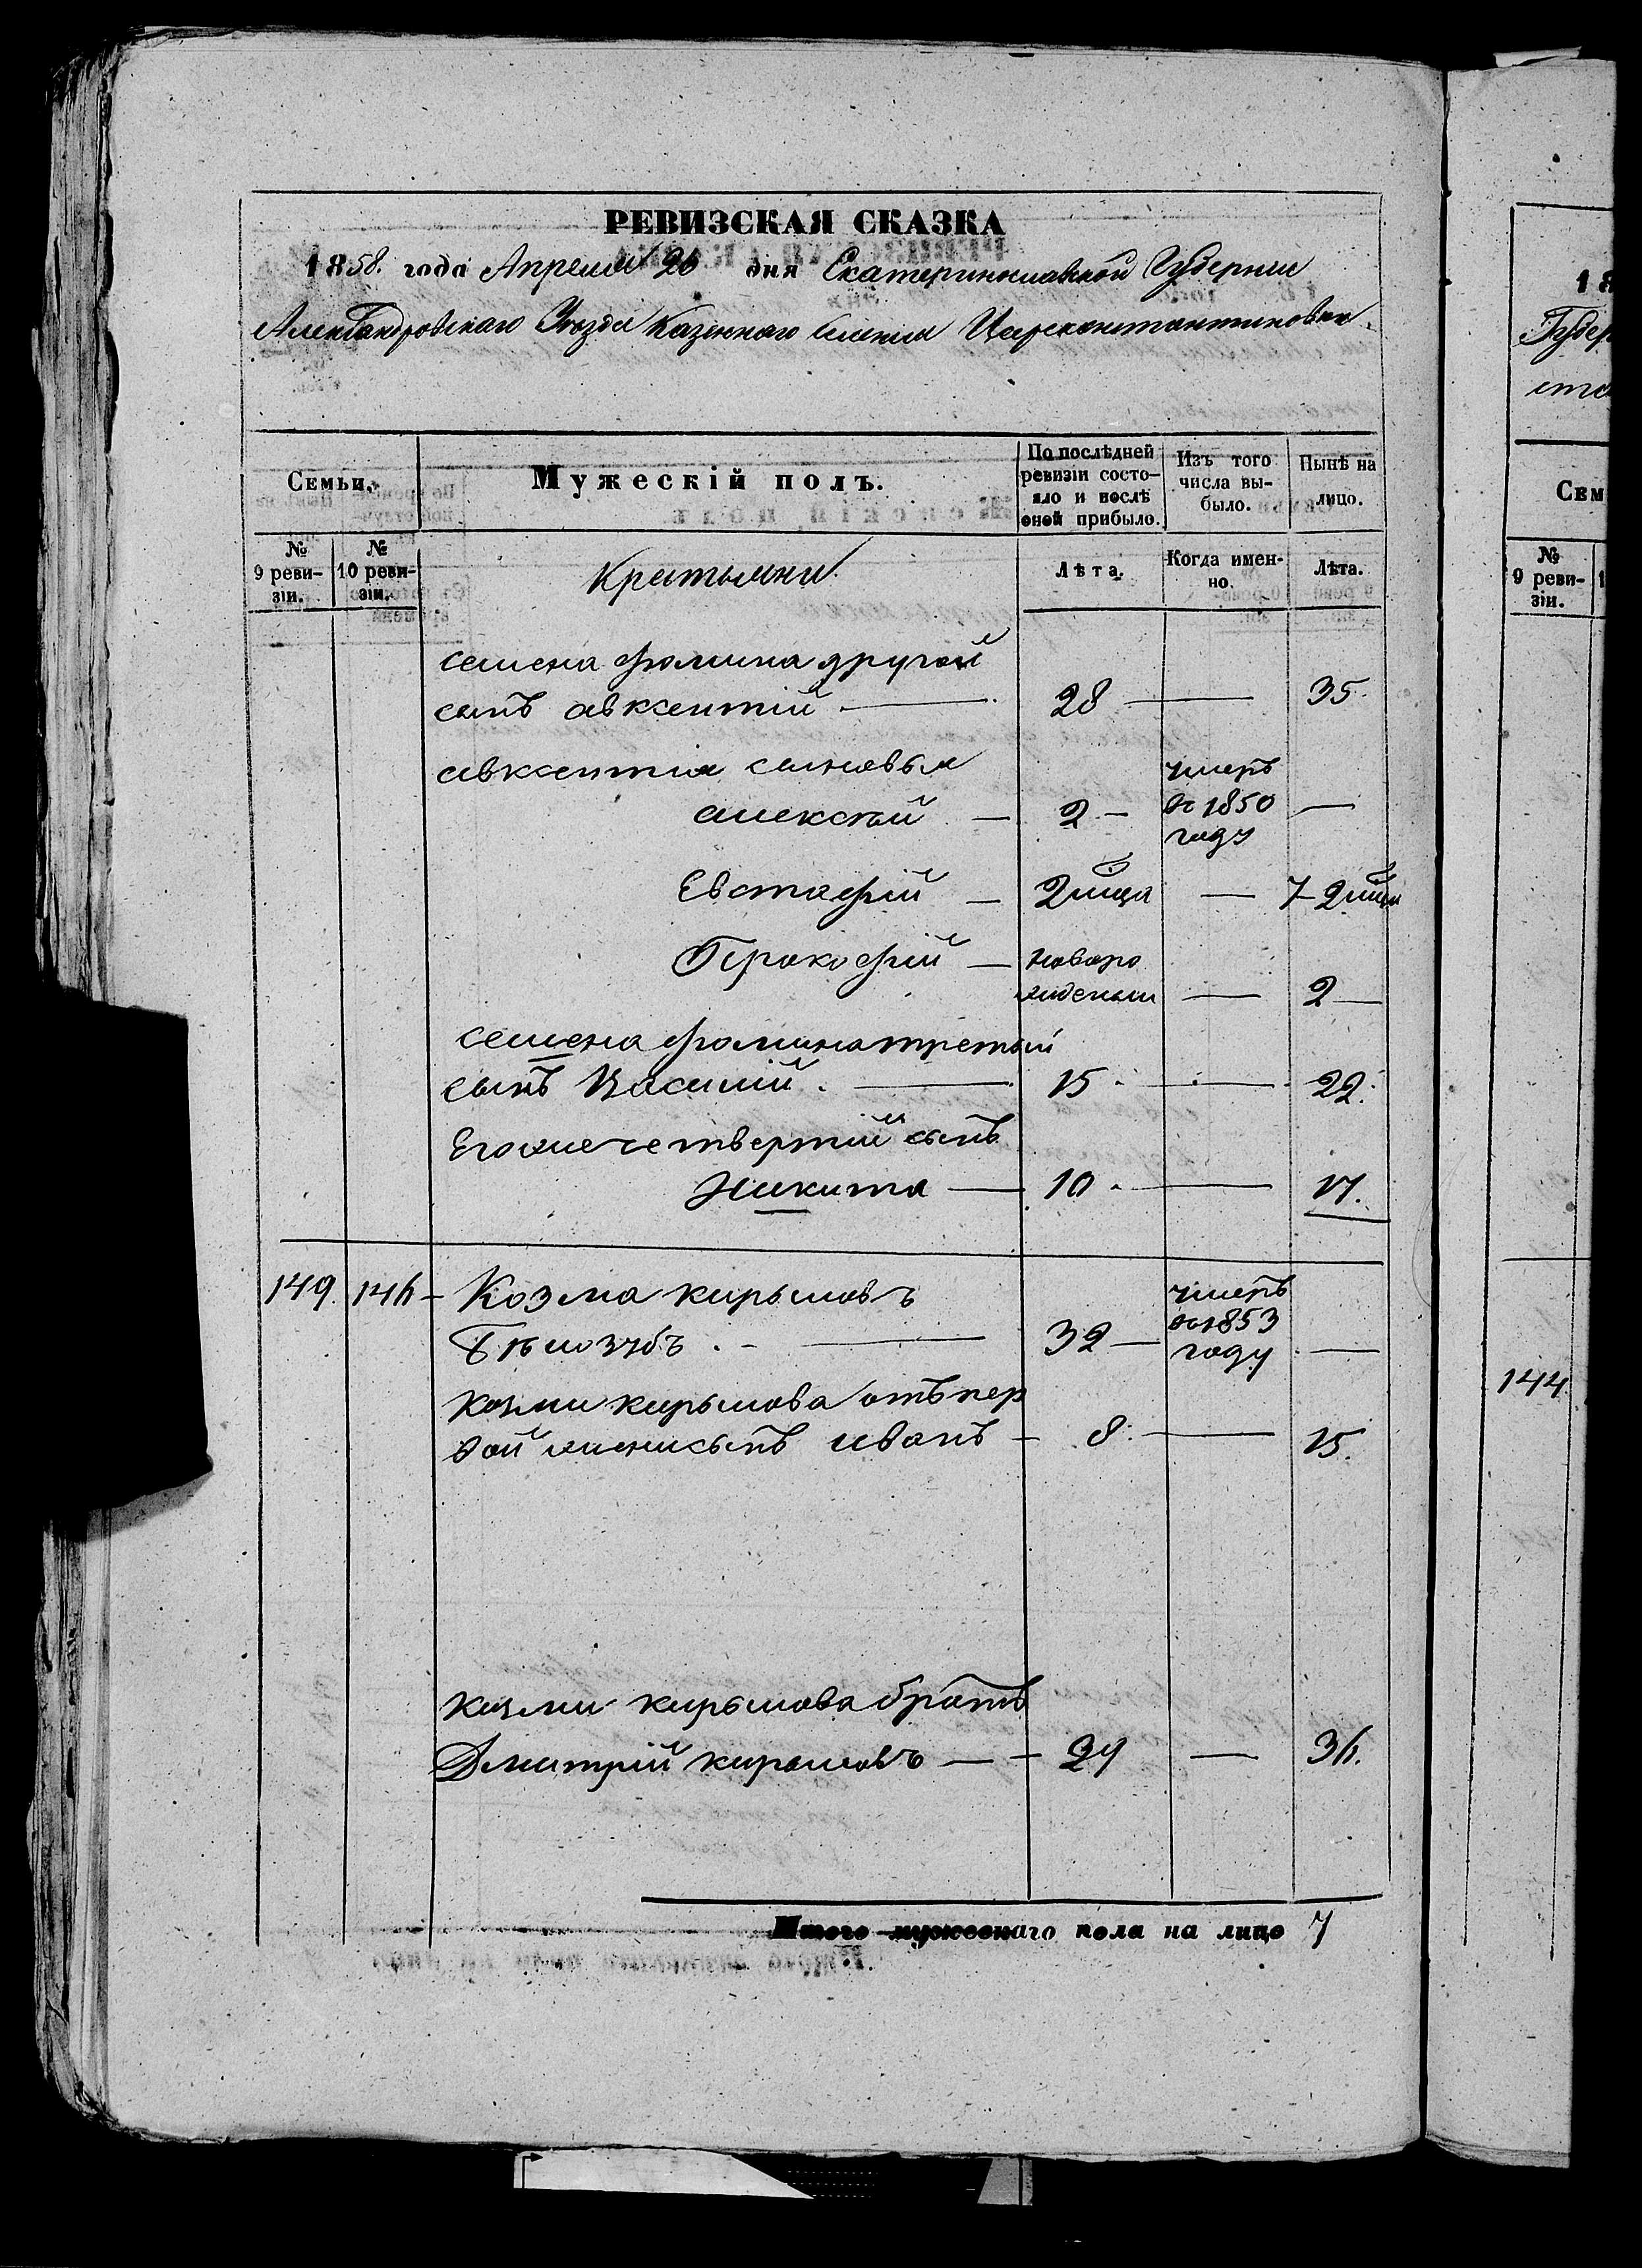 РЕВИЗСКАЯ СКАЗКА
1858. года Апреля 26 дня Екатеринославской Губернии
Александровскаго Уезда Казеннаго селения Царсконстантиновки
Семьи.
Мужескій полъ.
По послѣдней ревизіи состояло и послѣ оной прибыло.
Изъ того числа выбыло.
Нынѣ на лицо.
№ 9 ревизіи.
№ 10 ревизіи.
Крестьяни
Лѣта.
Когда именно.
Лѣта.
семена фомина другой
сынъ авксентій — 28 — 35
авксентія сыновья
алексѣй — 2 — умеръ въ 1850 году —
Евстафій — 2 мца — 7 2 мца
Прокофій — новорожденый — 2
семена фомина третый
сынъ Василій — 15 — 22
Его же четвертій сынъ
Никита — 10 — 17.
149 146 Козма кирыловъ
Бѣлозубъ — 32 — умеръ въ 1853 году —
козми кирылова отъ пер
вой жени сынъ иванъ — 8 — 15.
козми кирылова братъ
Дмитрій кирыловъ — 29 — 36.
Итого мужескаго пола на лицо 7
18
Губер
Сем
№ 9 ревизіи.
144